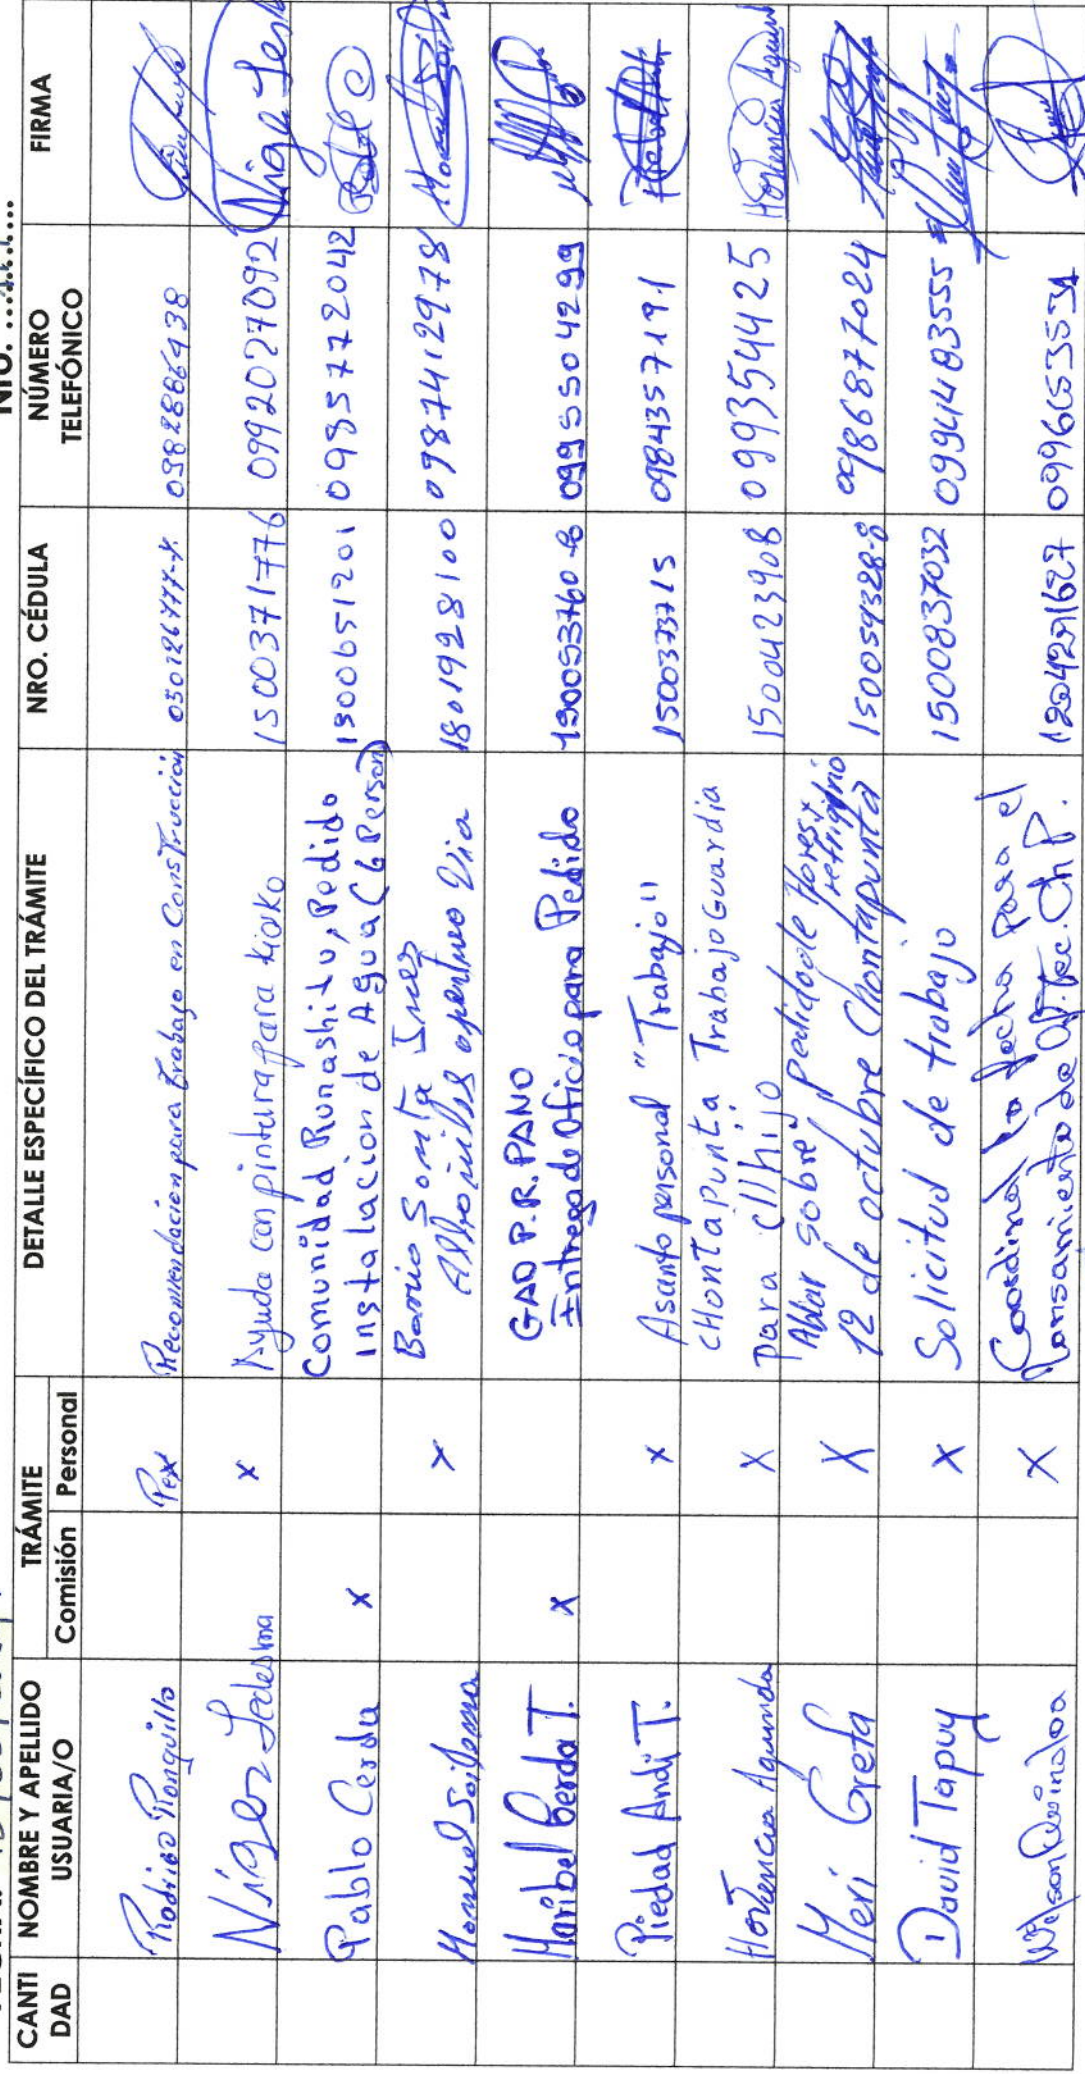 Nro.
CANTI DAD | NOMBRE Y APELLIDO USUARIA/O | TRÁMITE | DETALLE ESPECÍFICO DEL TRÁMITE | NRO. CÉDULA | NÚMERO TELEFÓNICO | FIRMA
Comisión | Personal
Rodrigo Ronquillo | Recomendacion para trabajo en Construcción | 0982886438
Niger Ledesma | x | Ayuda con pintura para kioko | 1500371776 | 0992027092
Pablo Cerda | x | Comunidad Runashito, Pedido
instalacion de Agua (6 Person) | 1500651201 | 0985772042
Manuel | x | Barrio Santa Ines
Via | 1801928100 | 0987412978
Maribel Cerda T. | x | GAD P.R. PANO
Entrega de Oficio para Pedido | 0995504299
Piedad Andy T. | x | Asunto personal "Trabajo" | 1500373715 | 0984357191
Hortencia Aguinda | x | CHontapunta Trabajo Guardia
para el hijo | 1500423908 | 0993544425 | Hortencia Aguin
Meri Grefa | X | Ablar sobre pedido de flores y
refrigerio
12 de octubre Chontapunta | 150059328-8 | 0986877024
David Tapuy | x | Solicitud de trabajo | 1500837032 | 0994483555
Wilson | X | Coordinar la fecha para el
lanzamiento de | 099665353